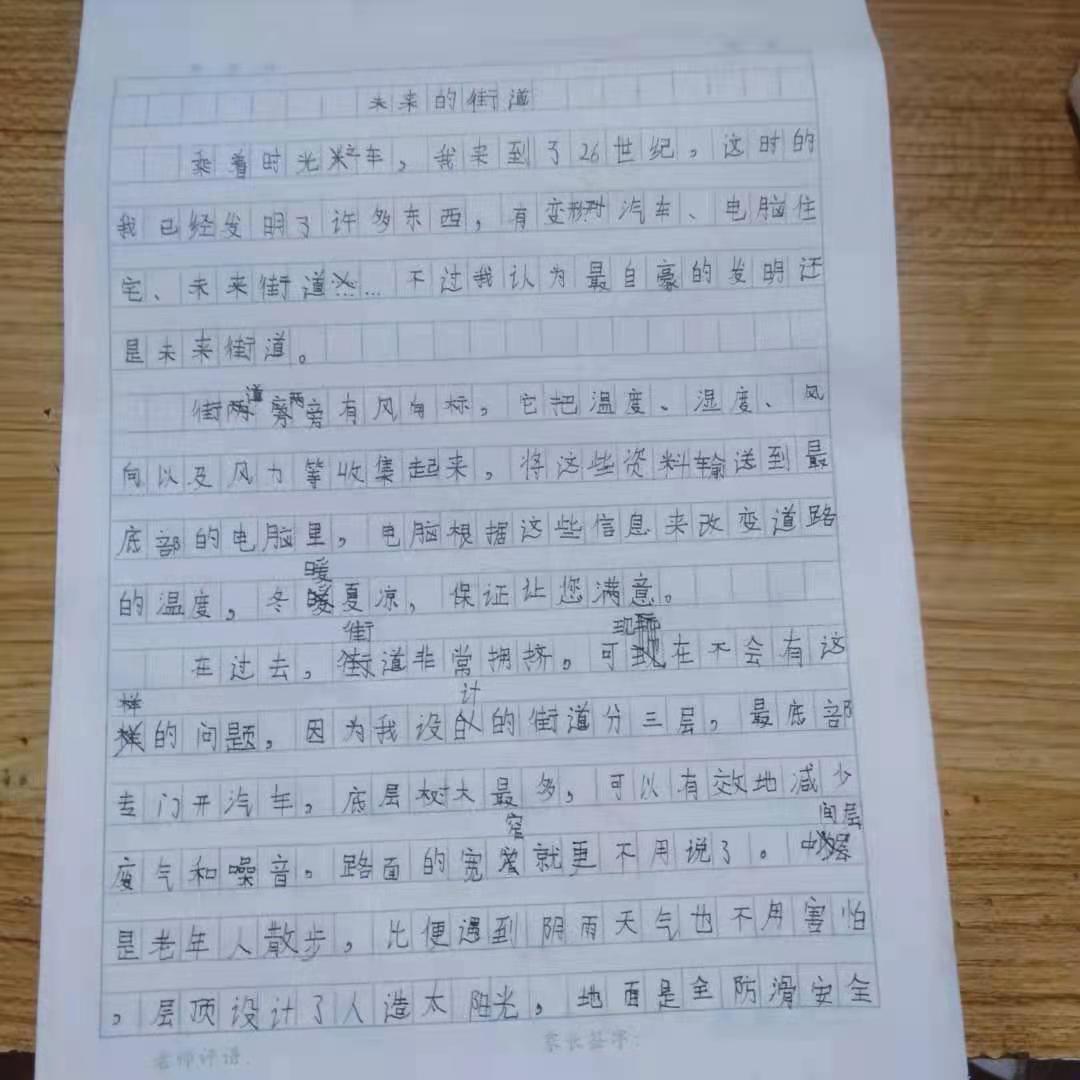 未来的街道
乘着时光车，我来到了26世纪，这时的
我已经发明了许多东西，有变形汽车、电脑住
宅、未来街道…不过我认为最自豪的发明还
是未来街道。
街道两旁有风向标，它把温度、湿度、风
向以及风力等收集起来，将这些资料输送到最
底部的电脑里，电脑根据这些信息来改变道路
的温度，冬暖夏凉，保证让您满意。
在过去，街道非常拥挤。可现在不会有这
样的问题，因为我设计的街道分三层，最底部
专门开汽车，底层树木最多，可以有效地减少
废气和噪音。路面的宽窄就更不用说了。中间层
是老年人散步，比便遇到阴雨天气也不用害怕
，层顶设计了人造太阳光，地面是全防滑安全
老师评语:
家长签字: